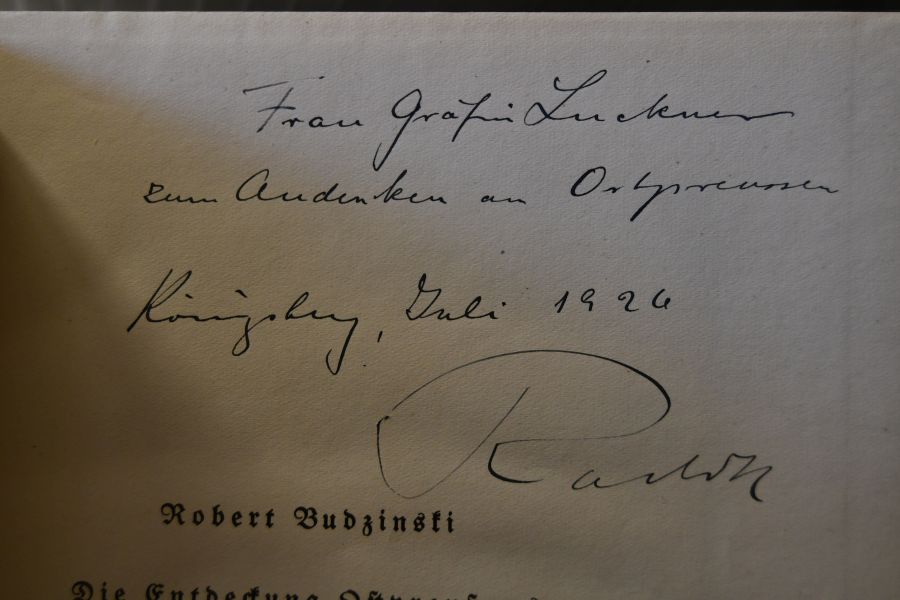 Frau Gräfin Luckner
zum Andenken an Ostpreussen
Königsberg, Juli 1926
Robert Budzinski
Die Entdeckung Ostpreußens